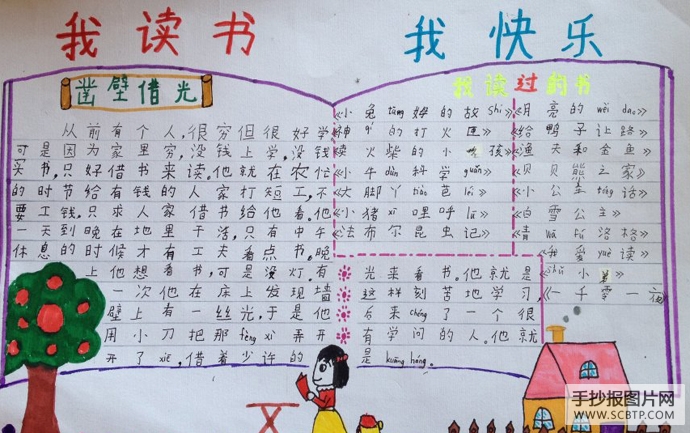 我读书 我快乐
凿壁借光
从前有个人,很穷但很好学
可是因为家里穷,没钱上学,没钱
买书,只好借书来读。他就在农忙
的时节给有钱的人家打短工,不
要工钱,只求人家借书给他看。他
一天到晚在地里干活,只有中午
休息的时候才有工夫看点书。晚
上他想看书,可是没灯有
一次他在床上发现墙
壁上有一丝光,于是他
用小刀把那fèng xì弄开
开了xiē,借着少许的
光来看书。他就是
这样刻苦地学习,
后来chéng了一个很
有学问的人。他就
是kuāng héng.
我读过的书
《小兔tāng姆的故shi》
神qí的打火匣》
卖火柴的小女孩》
《小牛dùn科学guǎn》
《大脚丫tiào芭lěi》
《小猪xī哩呼lū》
《法布尔昆虫记》
《月亮的wèi dào》
《给鸭子让路》
《渔夫和金鱼》
《贝贝熊之家》
《小公主tóng话》
《白雪公主》
《青wā fú洛格》
《我爱yuè读》
《一千零一夜
手抄报图片网
WWW.SCBTP.COM